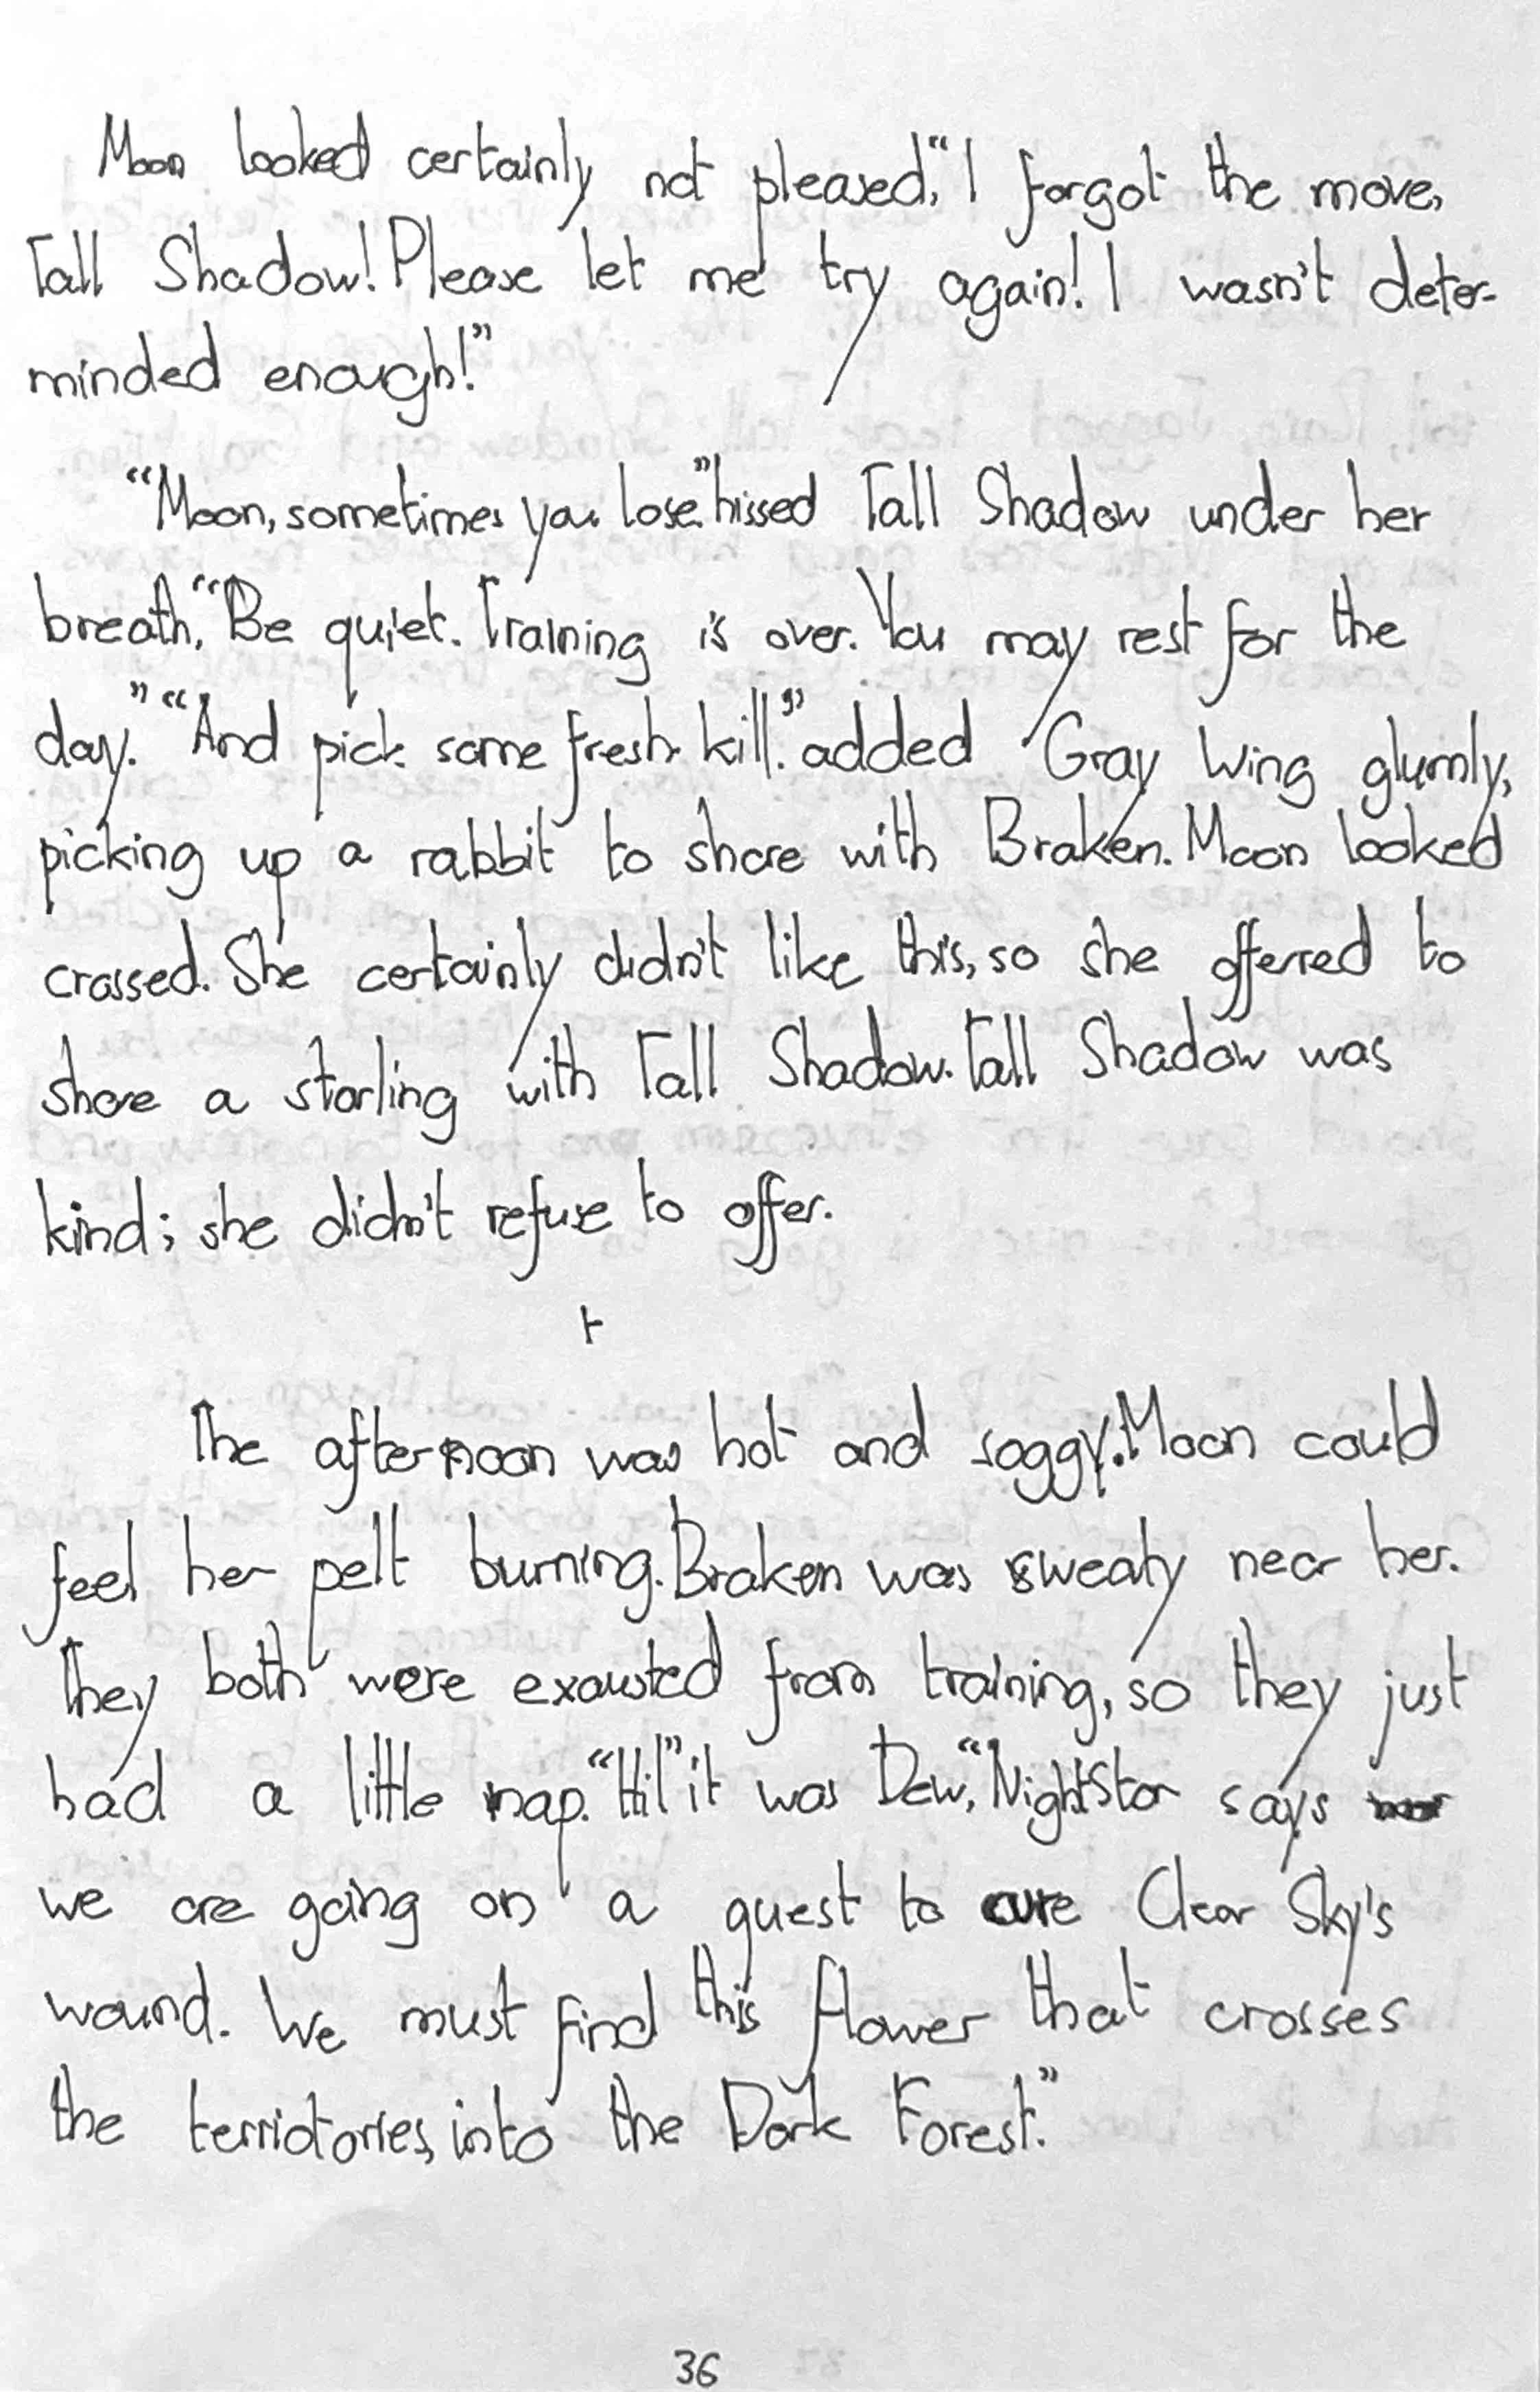 Moon looked certainly not pleased, “I forgot the move,
Tall Shadow! Please let me try again! I wasn't deter-
minded enough!”
“Moon, sometimes you lose.” hissed Tall Shadow under her
breath, “Be quiet. Training is over. You may rest for the
day.” “And pick some fresh-kill.” added Gray Wing glumly,
picking up a rabbit to share with Braken. Moon looked
crossed. She certainly didn't like this, so she offerred to
share a starling with Tall Shadow. Tall Shadow was
kind; she didn't refuse to offer.
The afternoon was hot and soggy. Moon could
feel her pelt burning. Braken was sweaty near her.
They both were exausted from training, so they just
had a little nap. “Hi!” it was Dew, “NightStar says
we are going on a quest to cure Clear Sky's
wound. We must find this flower that crosses
the terriotories, into the Dark Forest.”
36